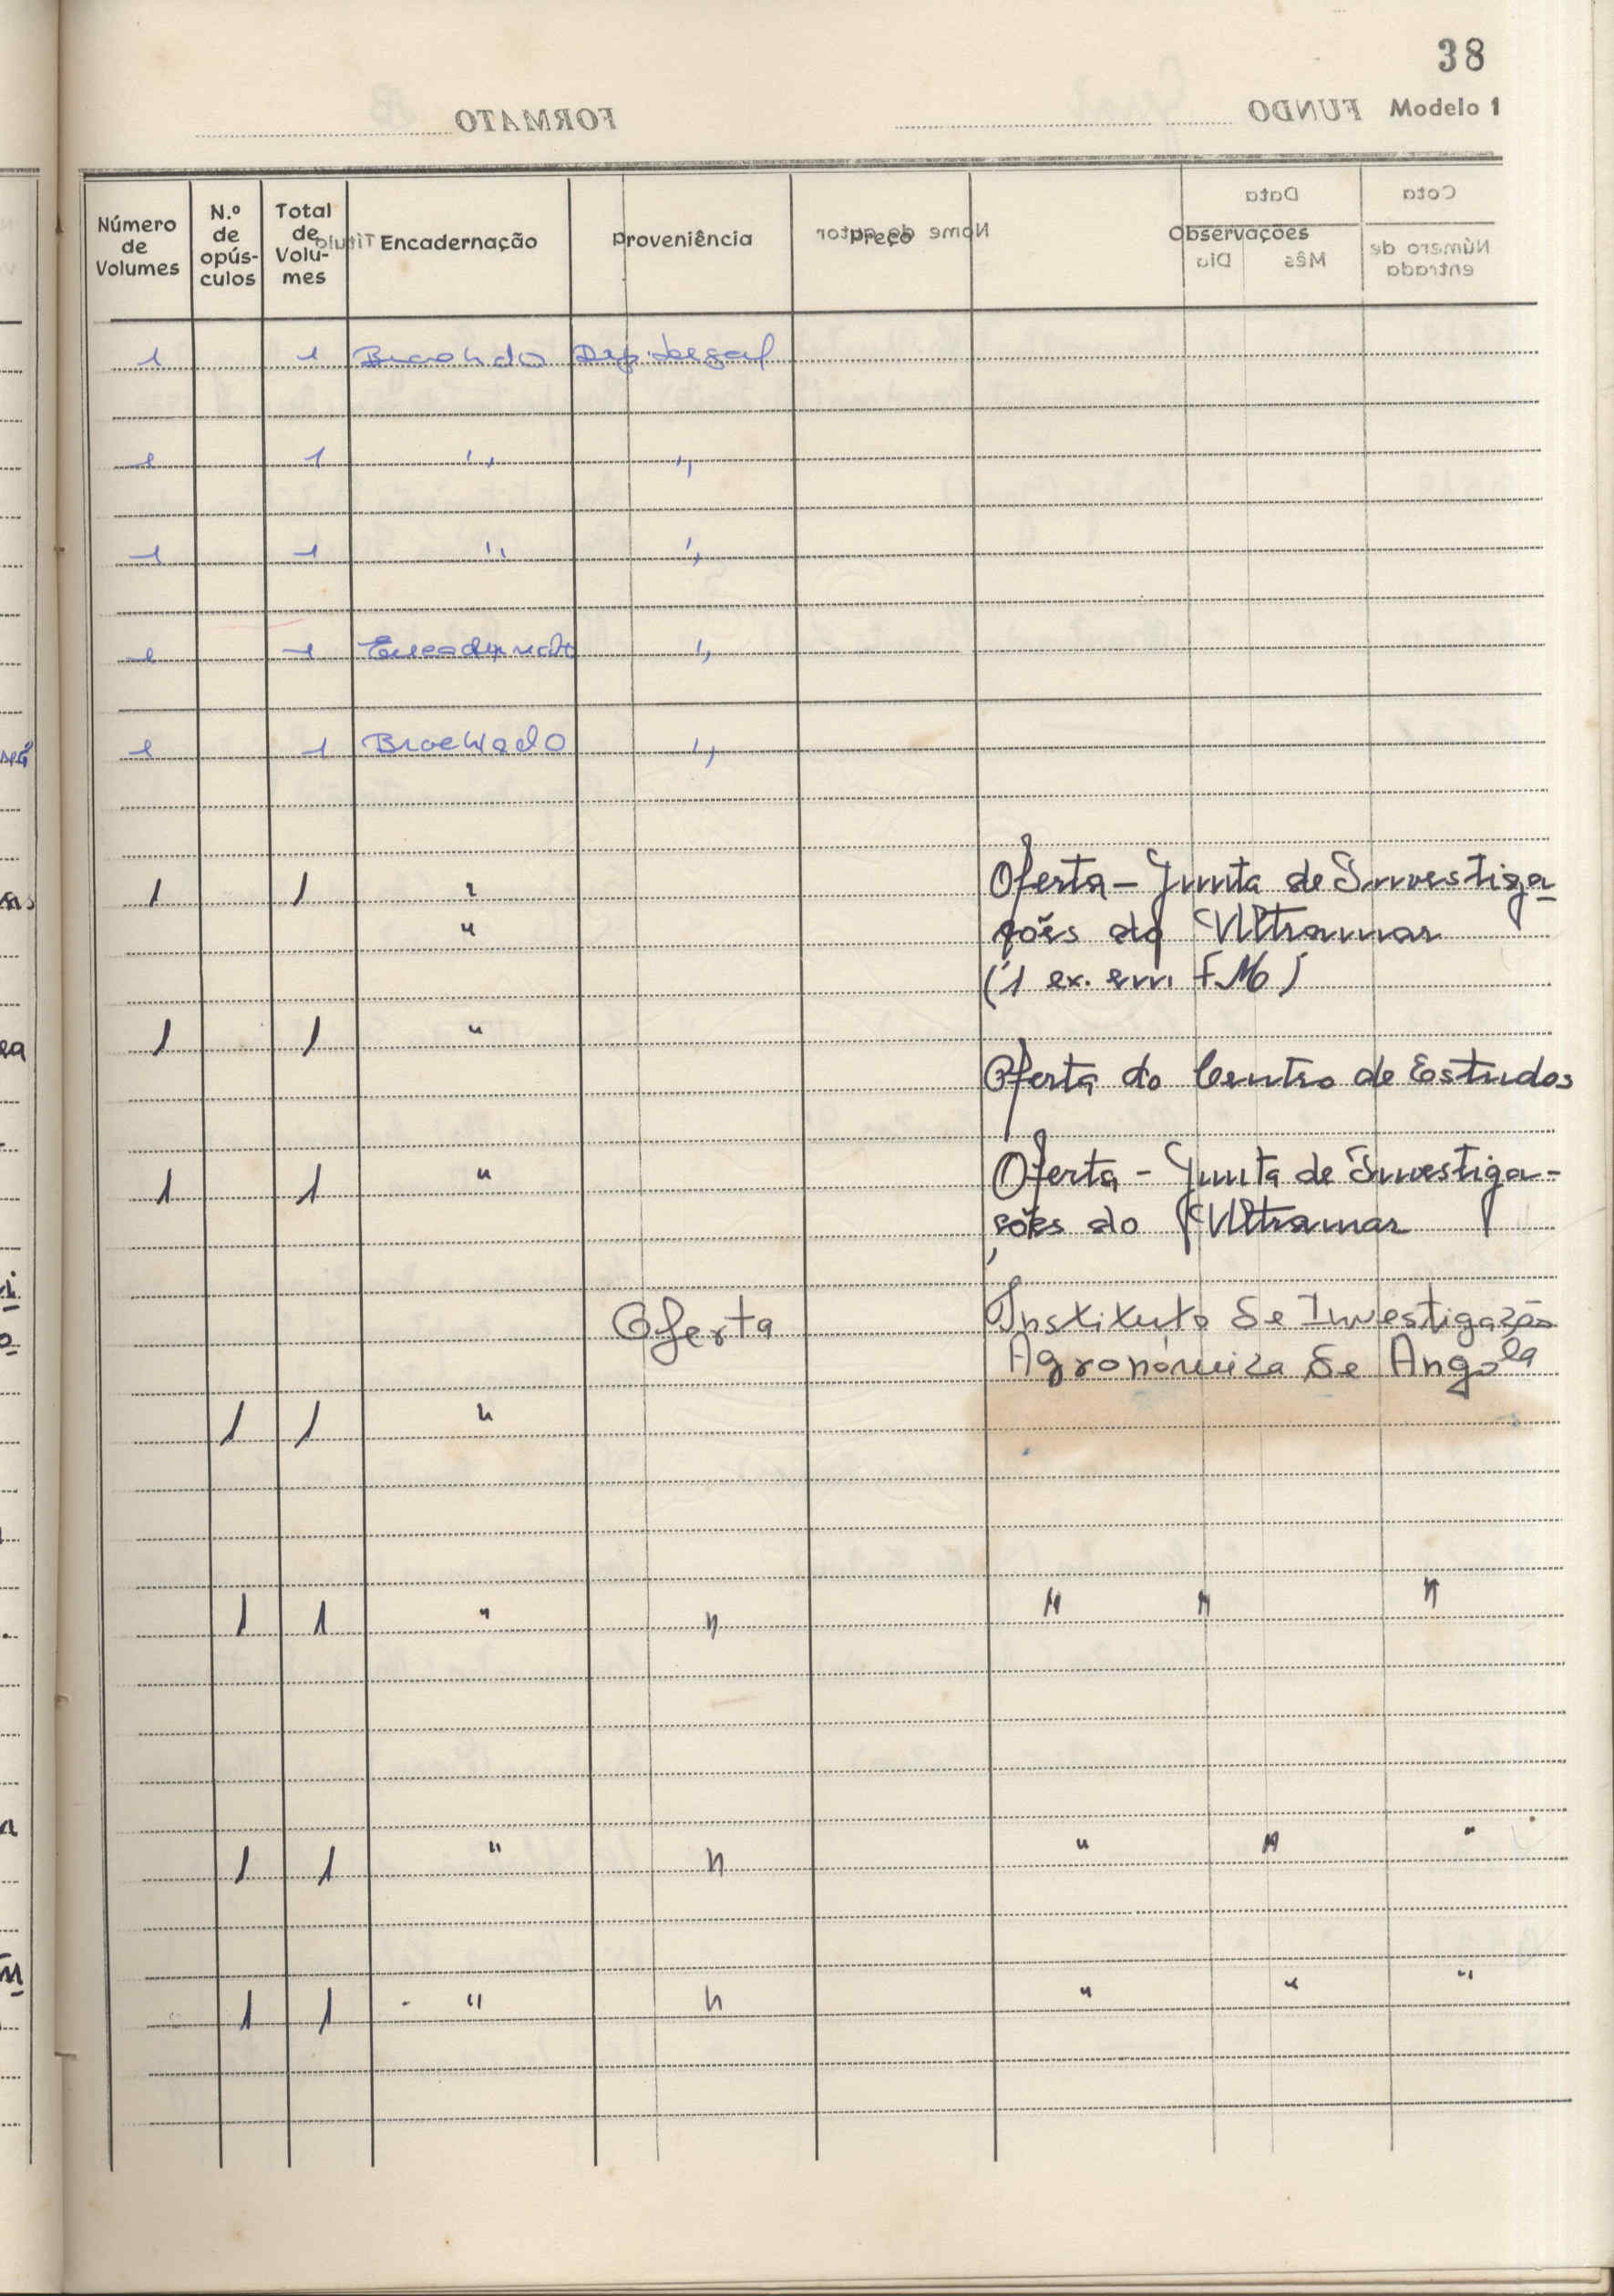 38
Modelo 1
FORMATO FUNDO
Número de Volumes N.º de opús-culos Total de Volu-mes Encadernação Proveniência Preço Observações
Título Nome do autor Data Dia Mês Cota Número de entrada
1 1 Brochado Dep. Legal
1 1 " "
1 1 " "
1 1 Encadernado "
1 1 Brochado "
1 1 " Oferta - Junta de Investiga-
" ções do Ultramar
(1 ex. em F.M)
1 1 "
Oferta do Centro de Estudos
1 1 " Oferta - Junta de Investiga-
ções do Ultramar
Oferta Instituto de Investigação
Agronómica de Angola
1 1 "
1 1 " " " " "
1 1 " " " " "
1 1 " " " " "